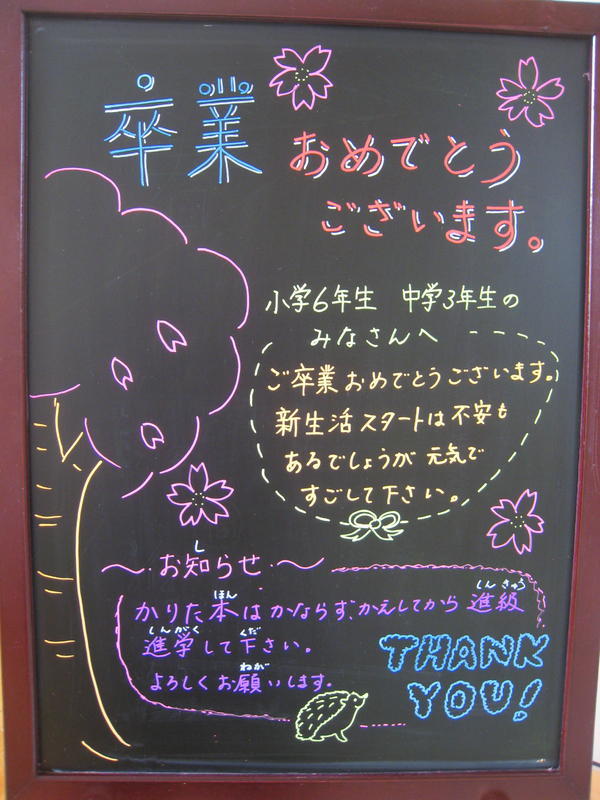 卒業 おめでとう
ございます。
小学6年生 中学3年生の
みなさんへ
ご卒業おめでとうございます。
新生活スタートは不安も
あるでしょうが元気で
すごして下さい。
～・お知らせ・～
し
かりた本はかならず、かえしてから進級
ほん しんきゅう
進学して下さい。
しんがく くだ
よろしくお願いします。
ねが
THANK
YOU!